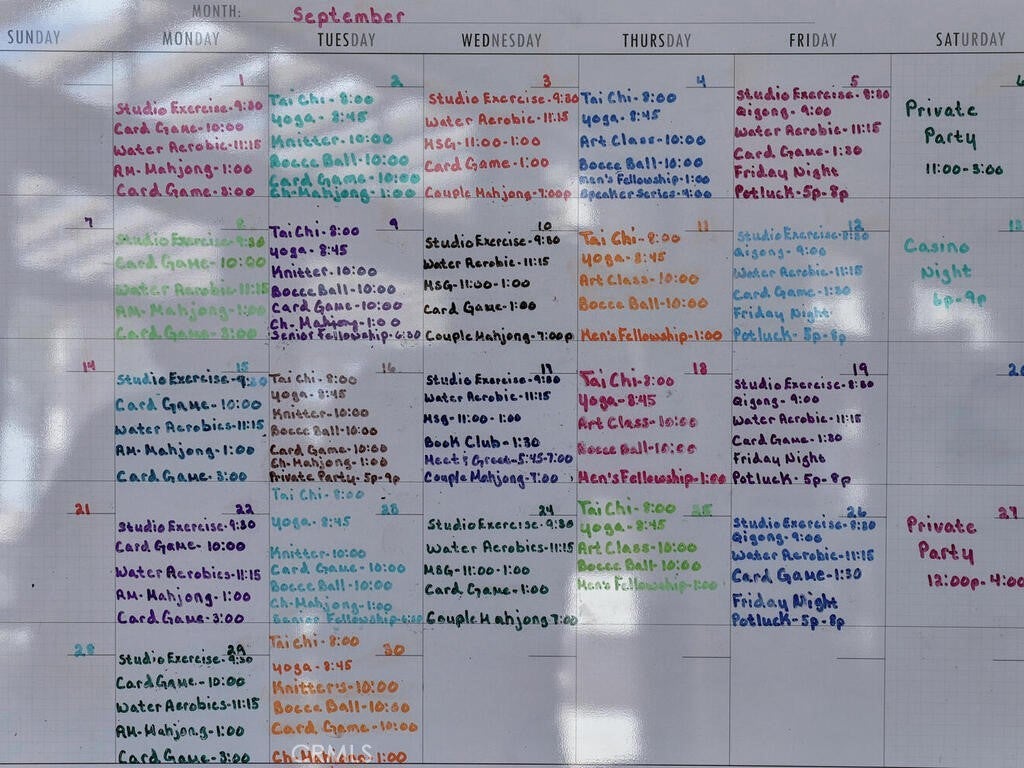 MONTH: September
SUNDAY MONDAY TUESDAY WEDNESDAY THURSDAY FRIDAY SATURDAY
1
Studio Exercise-9:30
Card Game-10:00
Water Aerobic-11:15
AM-Mahjong-1:00
Card Game-3:00
2
Tai Chi-8:00
Yoga-8:45
Knitter-10:00
Bocce Ball-10:00
Card Game-10:00
Ch-Mahjong-1:00
3
Studio Exercise-9:30
Water Aerobic-11:15
MSG-11:00-1:00
Card Game-1:00
Couple Mahjong-7:00p
4
Tai Chi-8:00
Yoga-8:45
Art Class-10:00
Bocce Ball-10:00
Men's Fellowship-1:00
Speaker Series-4:00
5
Studio Exercise-8:30
Qigong-9:00
Water Aerobic-11:15
Card Game-1:30
Friday Night
Potluck-5p-8p
6
Private
Party
11:00-3:00
7
8
Studio Exercise-9:30
Card Game-10:00
Water Aerobic-11:15
AM-Mahjong-1:00
Card Game-3:00
9
Tai Chi-8:00
Yoga-8:45
Knitter-10:00
Bocce Ball-10:00
Card Game-10:00
Ch-Mahjong-1:00
Senior Fellowship-6:30
10
Studio Exercise-9:30
Water Aerobic-11:15
MSG-11:00-1:00
Card Game-1:00
Couple Mahjong-7:00p
11
Tai Chi-8:00
Yoga-8:45
Art Class-10:00
Bocce Ball-10:00
Men's Fellowship-1:00
12
Studio Exercise-8:30
Qigong-9:00
Water Aerobic-11:15
Card Game-1:30
Friday Night
Potluck-5p-8p
13
Casino
Night
6p-9p
14
15
Studio Exercise-9:30
Card Game-10:00
Water Aerobics-11:15
AM-Mahjong-1:00
Card Game-3:00
16
Tai Chi-8:00
Yoga-8:45
Knitter-10:00
Bocce Ball-10:00
Card Game-10:00
Ch-Mahjong-1:00
Private Party-5p-9p
17
Studio Exercise-9:30
Water Aerobic-11:15
Msg-11:00-1:00
Book Club-1:30
Meet & Greet-5:45-7:00
Couple Mahjong-7:00
18
Tai Chi-8:00
Yoga-8:45
Art Class-10:00
Bocce Ball-10:00
Men's Fellowship-1:00
19
Studio Exercise-8:30
Qigong-9:00
Water Aerobic-11:15
Card Game-1:30
Friday Night
Potluck-5p-8p
20
21
22
Studio Exercise-9:30
Card Game-10:00
Water Aerobics-11:15
AM-Mahjong-1:00
Card Game-3:00
23
Tai Chi-8:00
Yoga-8:45
Knitter-10:00
Card Game-10:00
Bocce Ball-10:00
Ch-Mahjong-1:00
Senior Fellowship-6:30
24
Studio Exercise-9:30
Water Aerobics-11:15
MSG-11:00-1:00
Card Game-1:00
Couple Mahjong-7:00
25
Tai Chi-8:00
Yoga-8:45
Art Class-10:00
Bocce Ball-10:00
Men's Fellowship-1:00
26
Studio Exercise-8:30
Qigong-9:00
Water Aerobic-11:15
Card Game-1:30
Friday Night
Potluck-5p-8p
27
Private
Party
12:00p-4:00
28
29
Studio Exercise-9:30
Card Game-10:00
Water Aerobics-11:15
AM-Mahjong-1:00
Card Game-3:00
30
Tai Chi-8:00
Yoga-8:45
Knitter's-10:00
Bocce Ball-10:00
Card Game-10:00
Ch-Mahjong-1:00
CRMLS